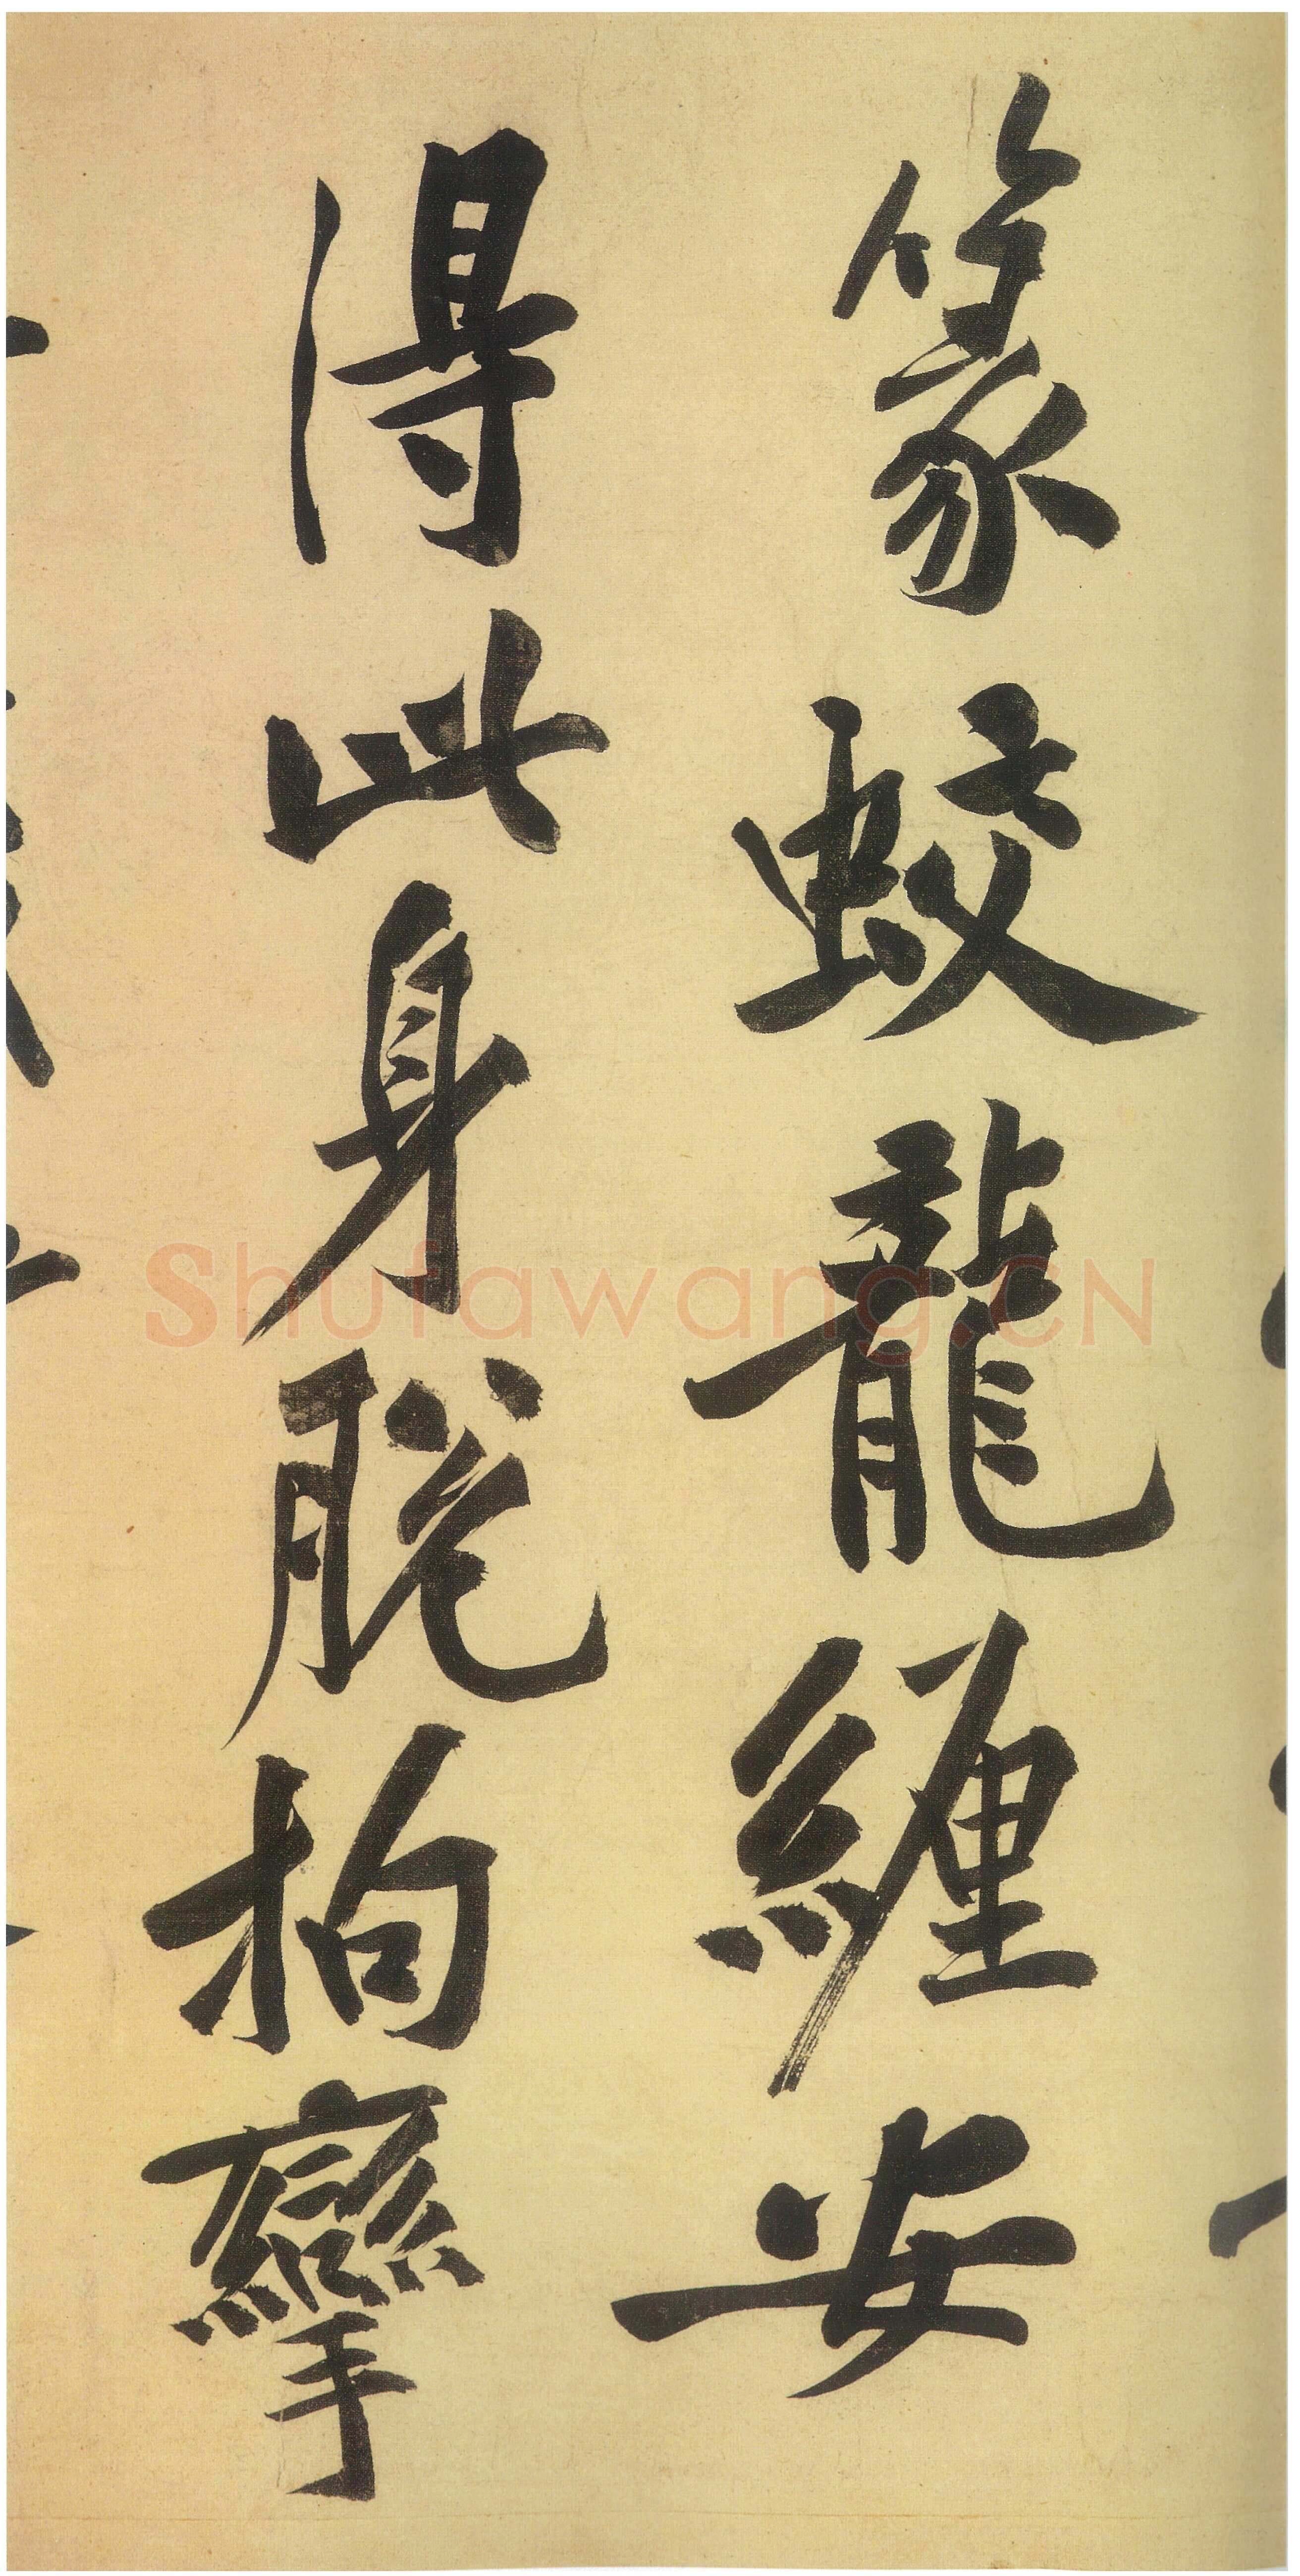 篆蛟龍纏安
得此身脱拘攣
Shufawang.CN